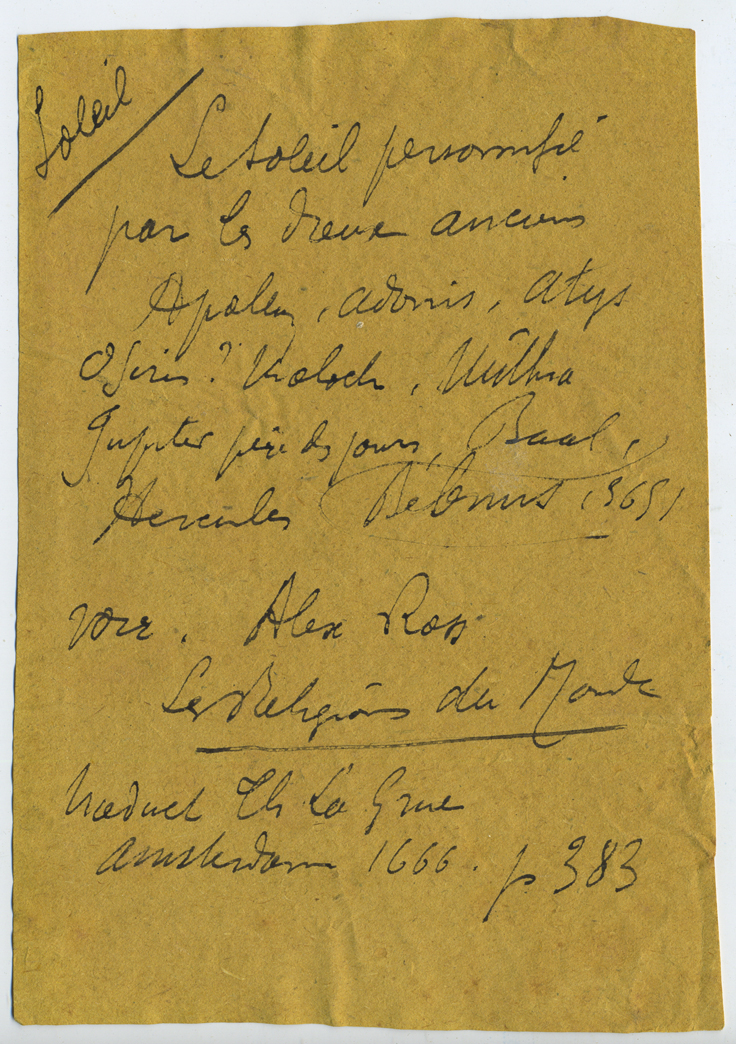 Soleil
Le Soleil personnifié
par les dieux anciens
Apollon, Adonis, Atys
Osiris? Moloch, Mithra
Jupiter père des jours, Baal,
Hercules Bélenus (365)
voir. Alex Ross
Les Religions du Monde
traduct Th La Grue
Amsterdam 1666. p 383